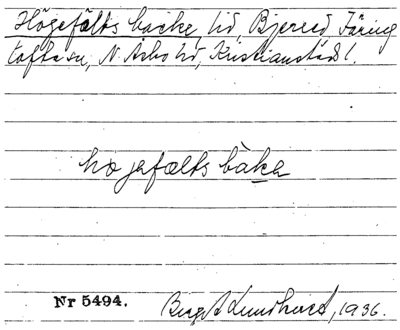 Högefälts backe, lid, Bjered, Färing
tofta sn, N. Åsbo hd, Kristianstads l.
hö jafælts bàka
Nr 5494. Birgit Lundhard, 1936.